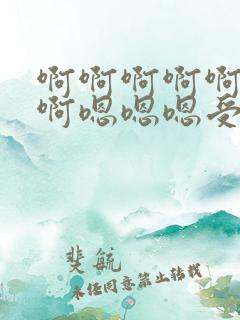 啊啊啊啊啊
啊嗯嗯嗯受
斐航
未经同意禁止转载